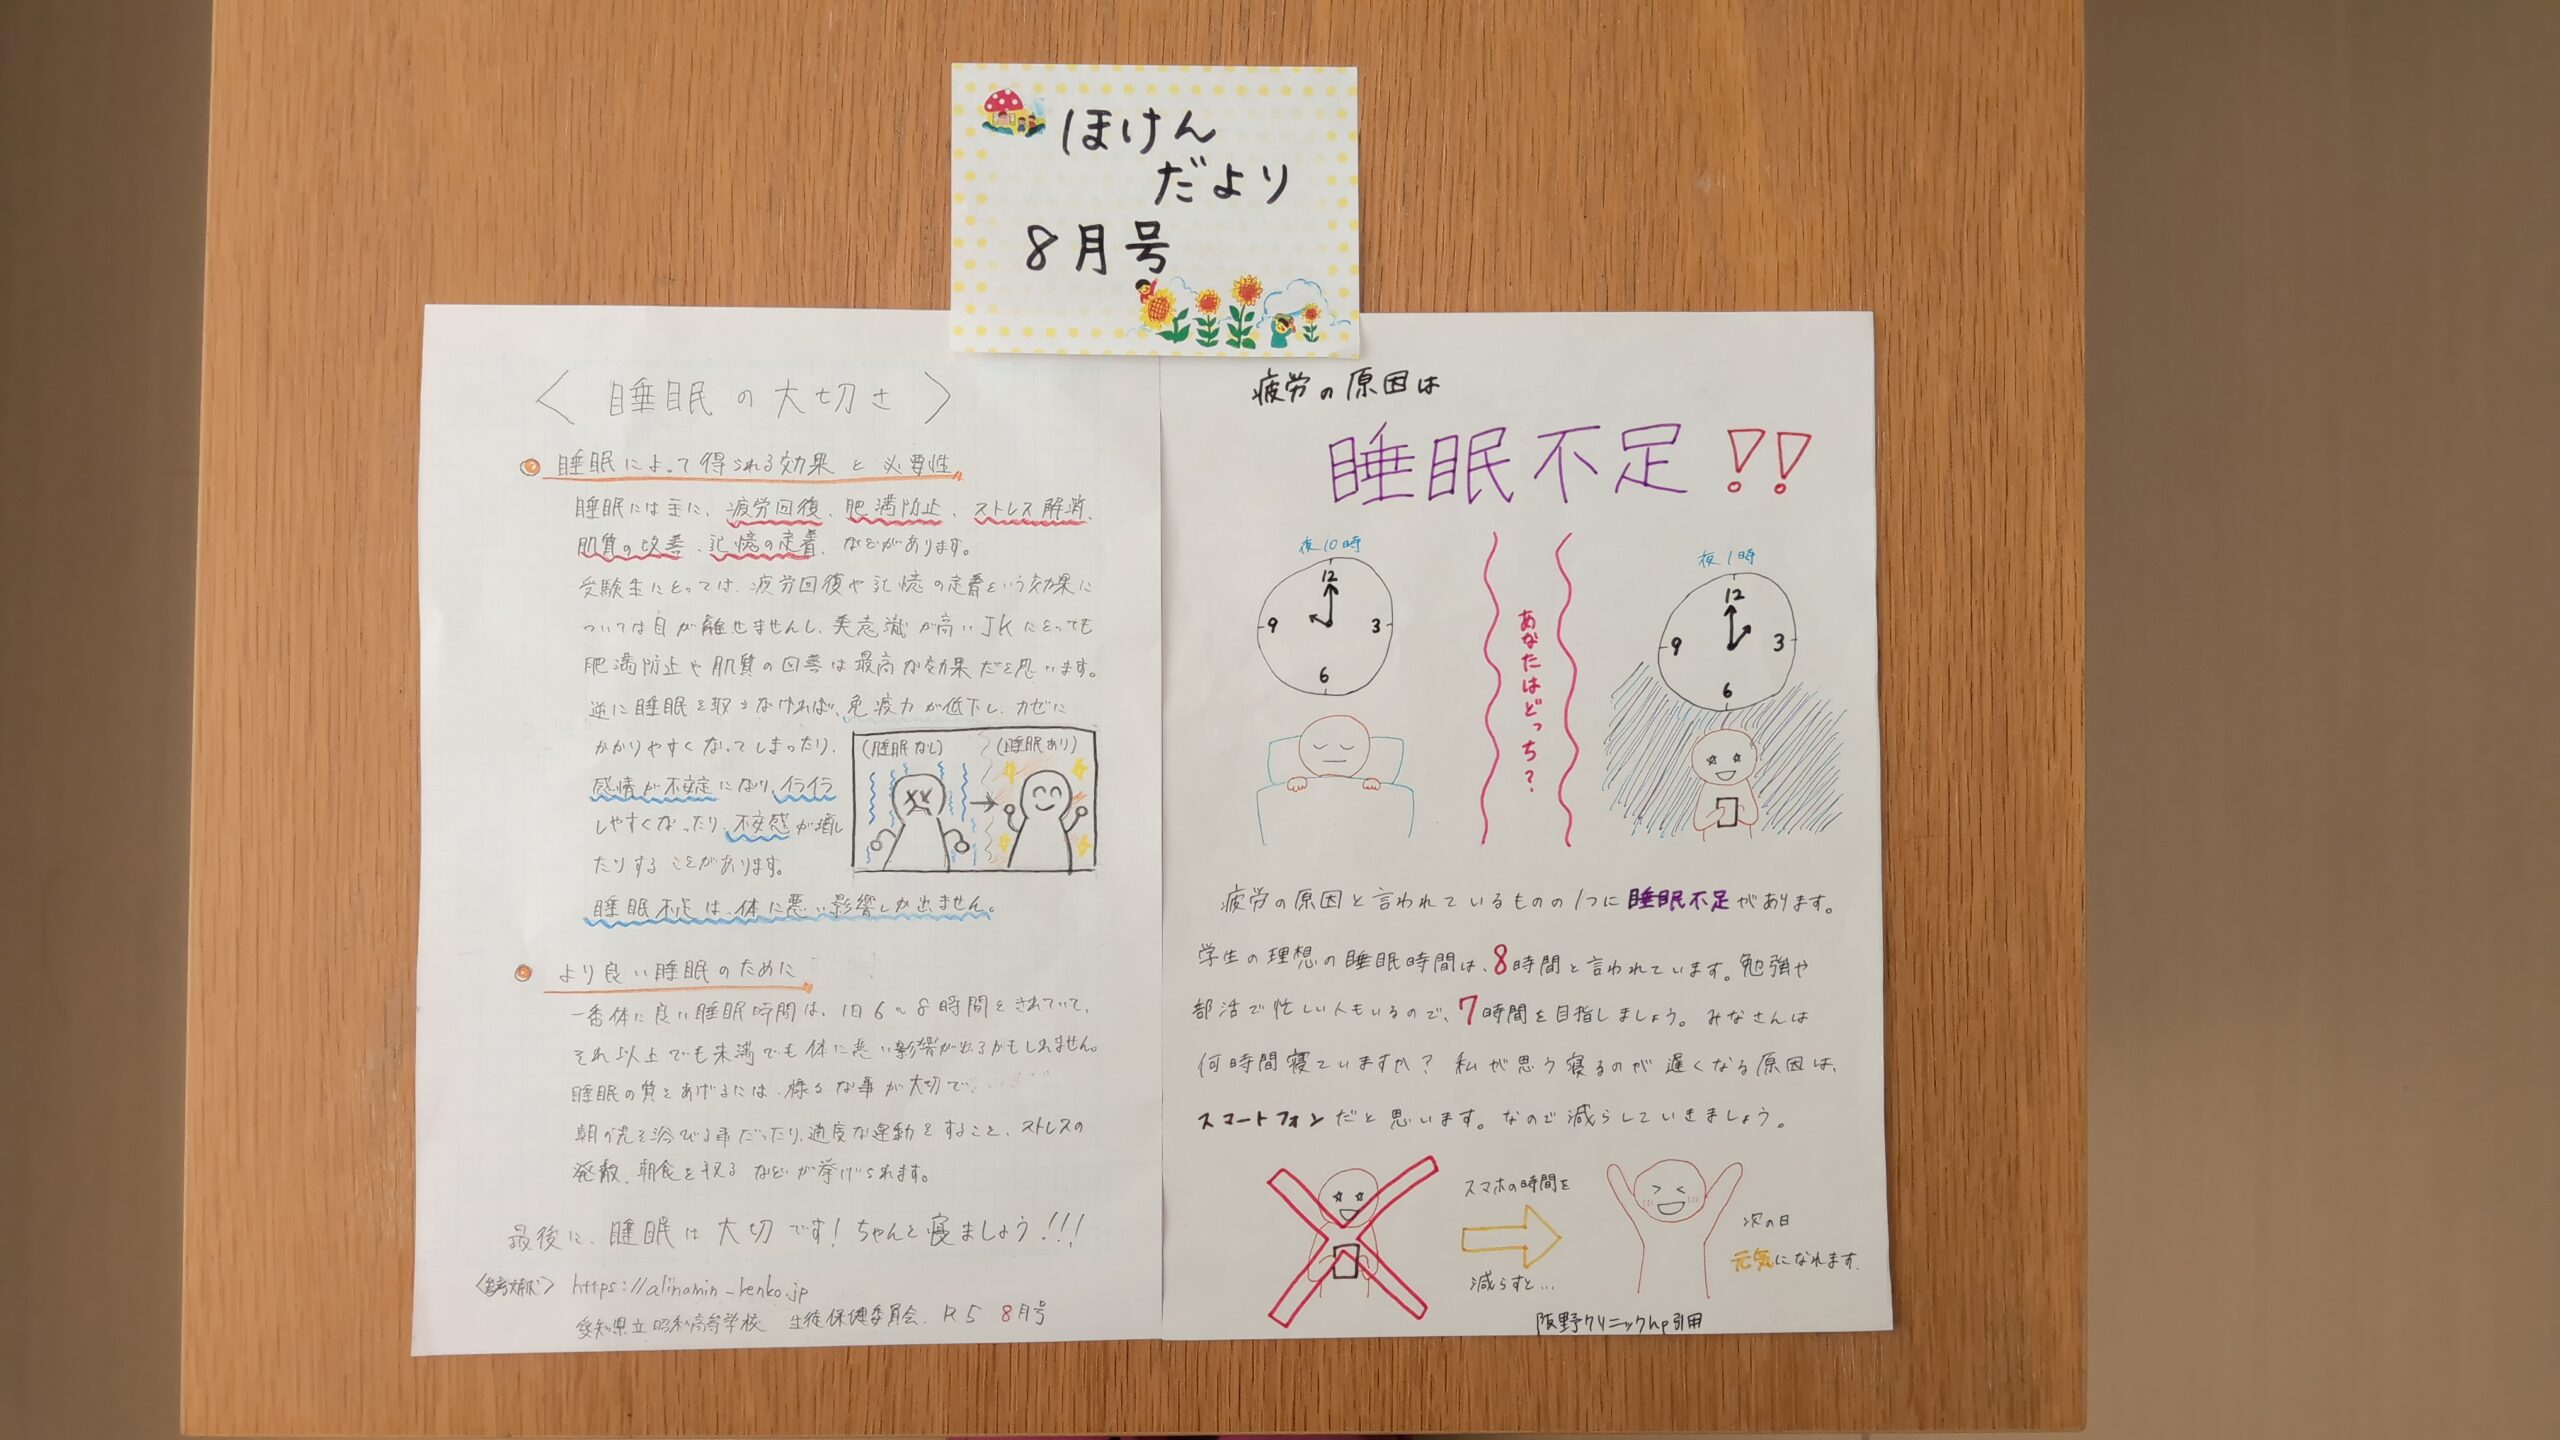 ほけん
だより
8月号
〈 睡眠の大切さ 〉
睡眠によって得られる効果と必要性
睡眠には主に、疲労回復、肥満防止、ストレス解消、
肌質の改善、記憶の定着、などがあります。
受験生にとっては、疲労回復や記憶の定着という効果に
ついては目が離せませんし、美意識が高いJKにとっても
肥満防止や肌質の回善は最高な効果だと思います。
逆に睡眠を取らなければ、免疫力が低下し、カゼに
かかりやすくなってしまったり、
感情が不安定になり、イライラ
しやすくなったり、不安感が増し
たりすることがあります。
(睡眠なし)
(睡眠あり)
睡眠不足は、体に悪い影響しか出ません。
より良い睡眠のために
一番体に良い睡眠時間は、1日6〜8時間とされていて、
それ以上でも未満でも体に悪い影響が出るかもしれません。
睡眠の質をあげるには、様々な事が大切で、
朝の光を浴びる事だったり、適度な運動をすること、ストレスの
発散、朝食を取るなどが挙げられます。
最後に、睡眠は大切です！ちゃんと寝ましょう！！！
〈参考文献〉 https://alinamin-kenko.jp
愛知県立昭和高等学校 生徒保健委員会 R5 8月号
疲労の原因は
睡眠不足！！
夜10時
12
9 3
6
あなたはどっち？
夜1時
12
9 3
6
疲労の原因と言われているものの1つに睡眠不足があります。
学生の理想の睡眠時間は、8時間と言われています。勉強や
部活で忙しい人もいるので、7時間を目指しましょう。みなさんは
何時間寝ていますか？ 私が思う寝るのが遅くなる原因は、
スマートフォンだと思います。なので減らしていきましょう。
スマホの時間を
減らすと…
次の日
元気になれます。
阪野クリニックhp引用